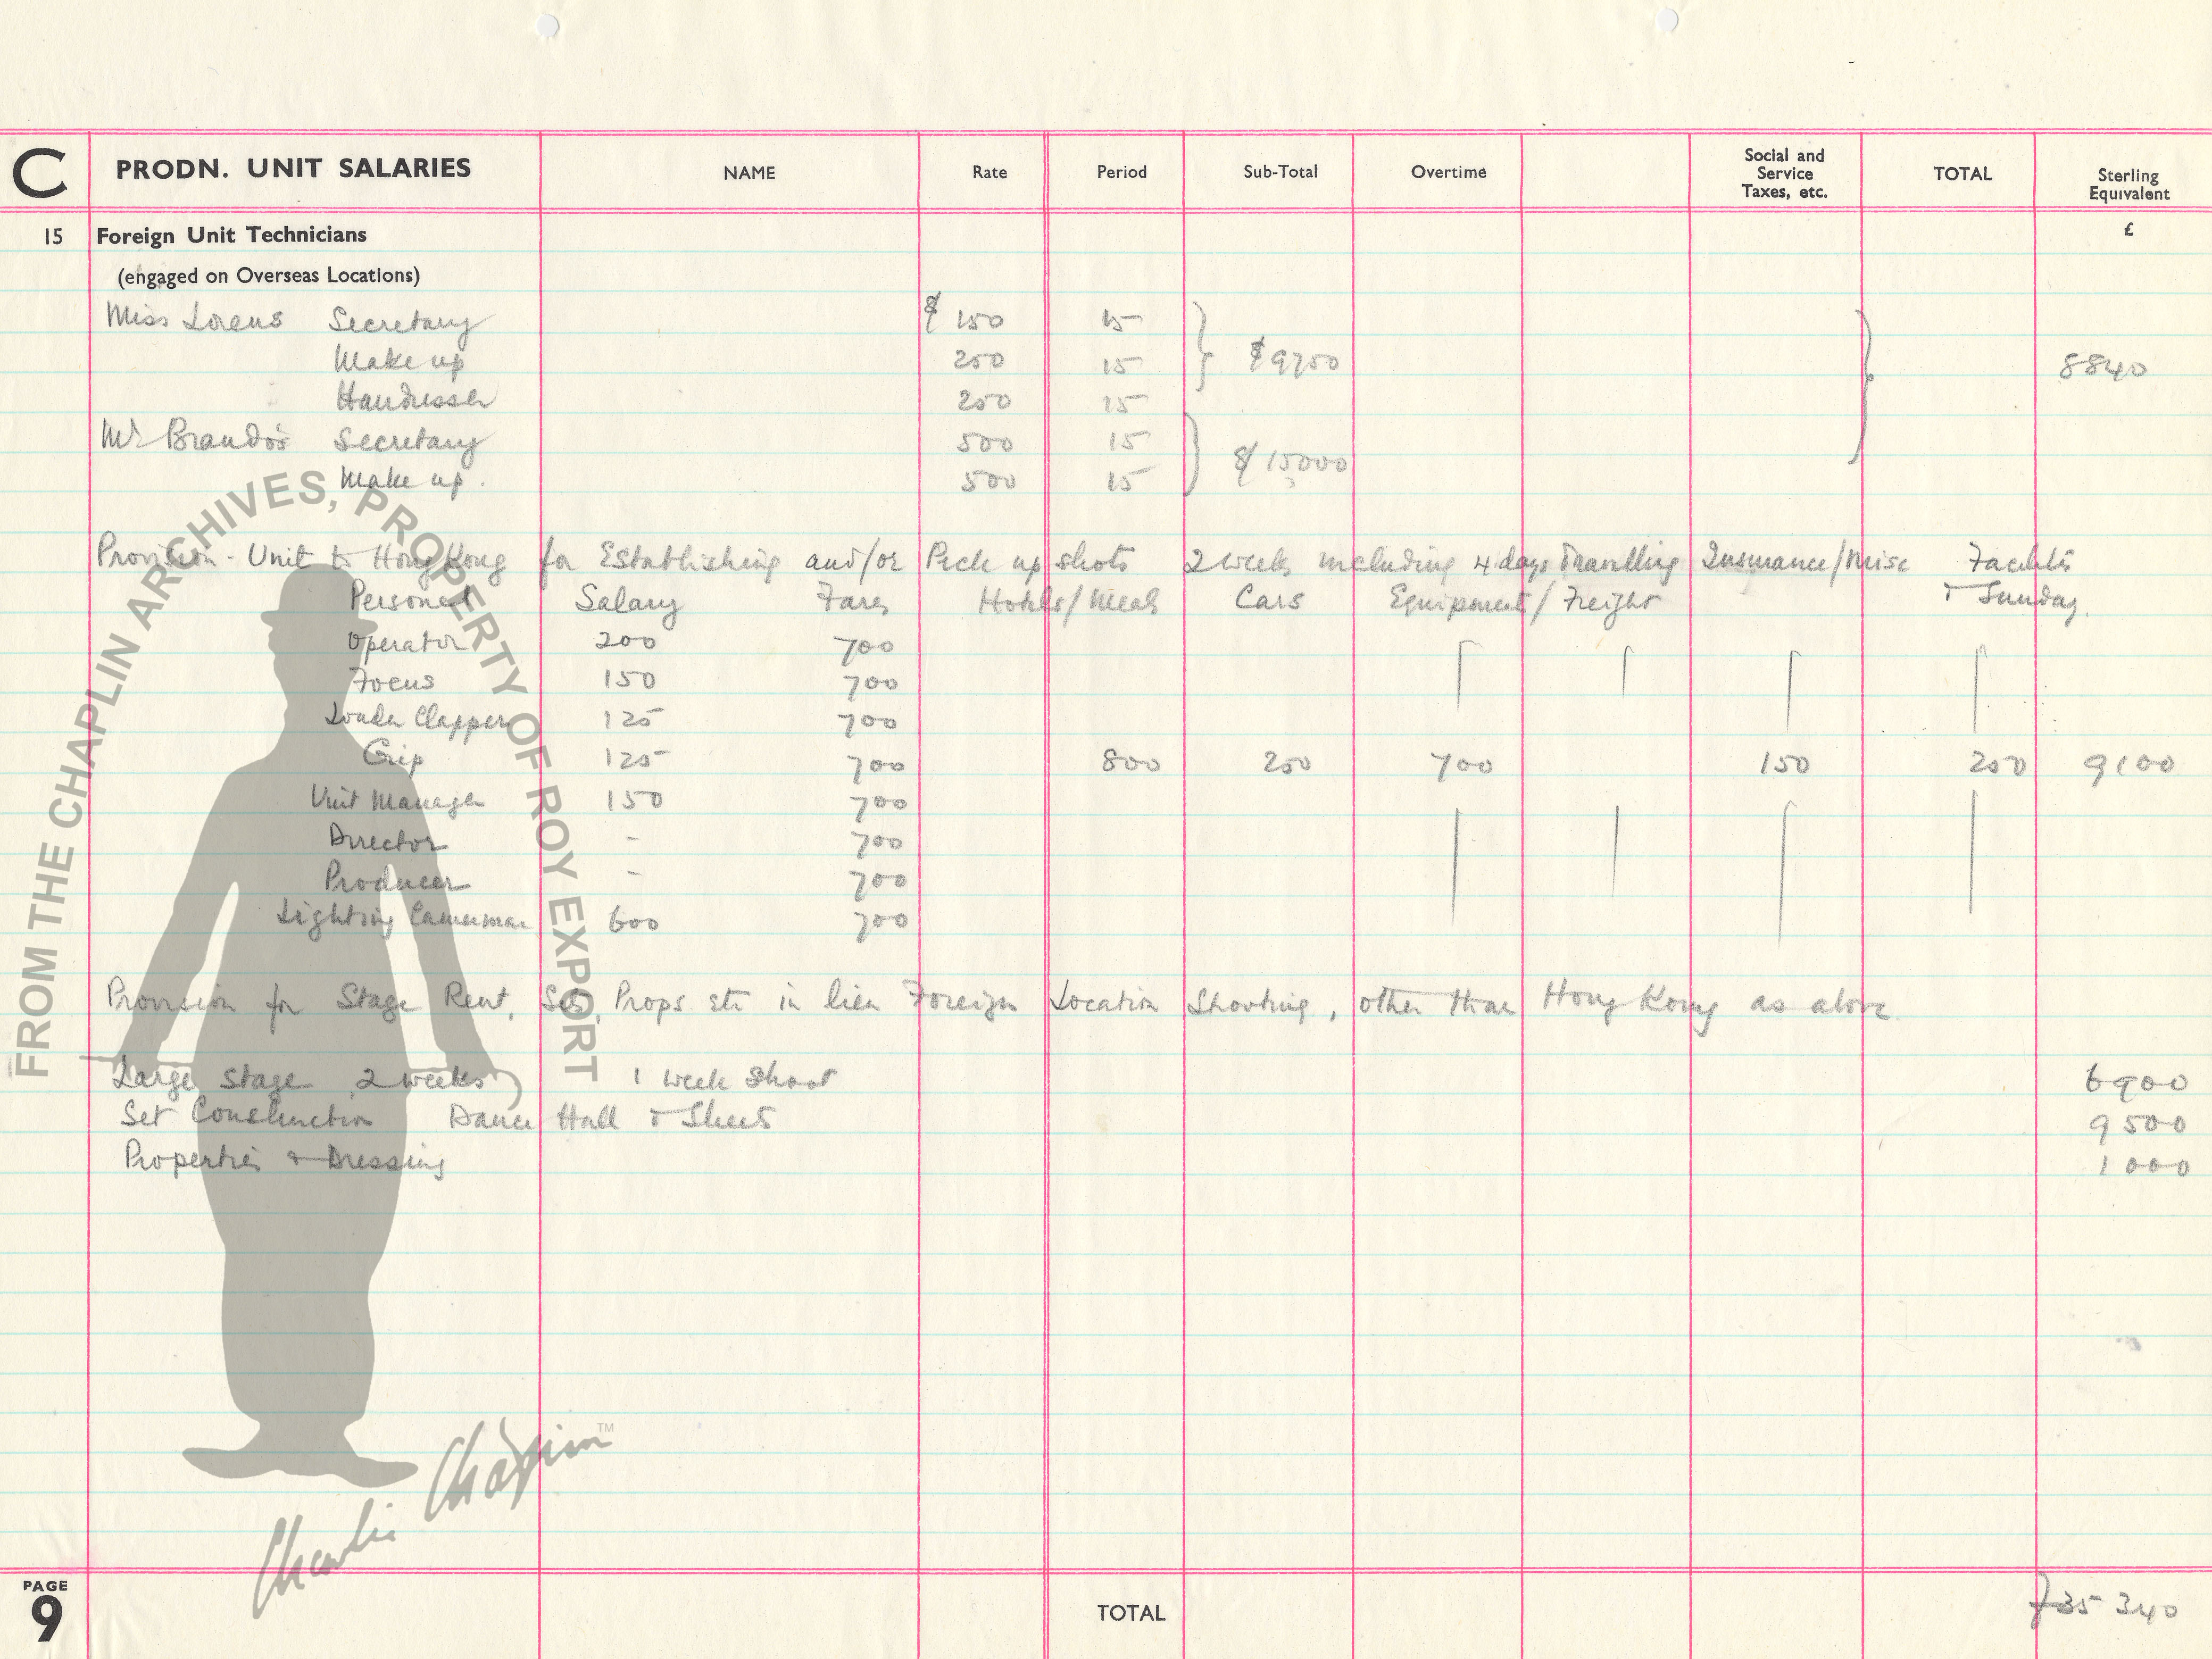 C PRODN. UNIT SALARIES NAME Rate Period Sub-Total Overtime Social and Service Taxes, etc. TOTAL Sterling Equivalent
15 Foreign Unit Technicians £
(engaged on Overseas Locations)
Miss Lorens Secretary $ 150 15
Make up 250 15 $ 9750 8840
Hairdresser 250 15
Mr Brando's Secretary 500 15
$ 15000
Make up. 500 15
Provision - Unit to Hong Kong for Establishing and/or Pick up shots 2 weeks including 4 days Travelling Insurance/Misc Facilities
Personel Salary Fares Hotels/Meals Cars Equipment/Freight & Sunday.
Operator 200 700
Focus 150 700
Loader Clapper 125 700
Grip 125 700 800 250 700 150 250 9100
Unit Manager 150 700
Director - 700
Producer - 700
Lighting Cameraman 600 700
Provision for Stage Rent, Sets, Props etc in lieu Foreign Location Shooting, other than Hong Kong as above
Large Stage 2 weeks 1 week shoot 6900
Set Construction Dance Hall & Sheets 9500
Properties & Dressing 1000
PAGE
9 TOTAL 35 340
FROM THE CHAPLIN ARCHIVES, PROPERTY OF ROY EXPORT
Charlie Chaplin™